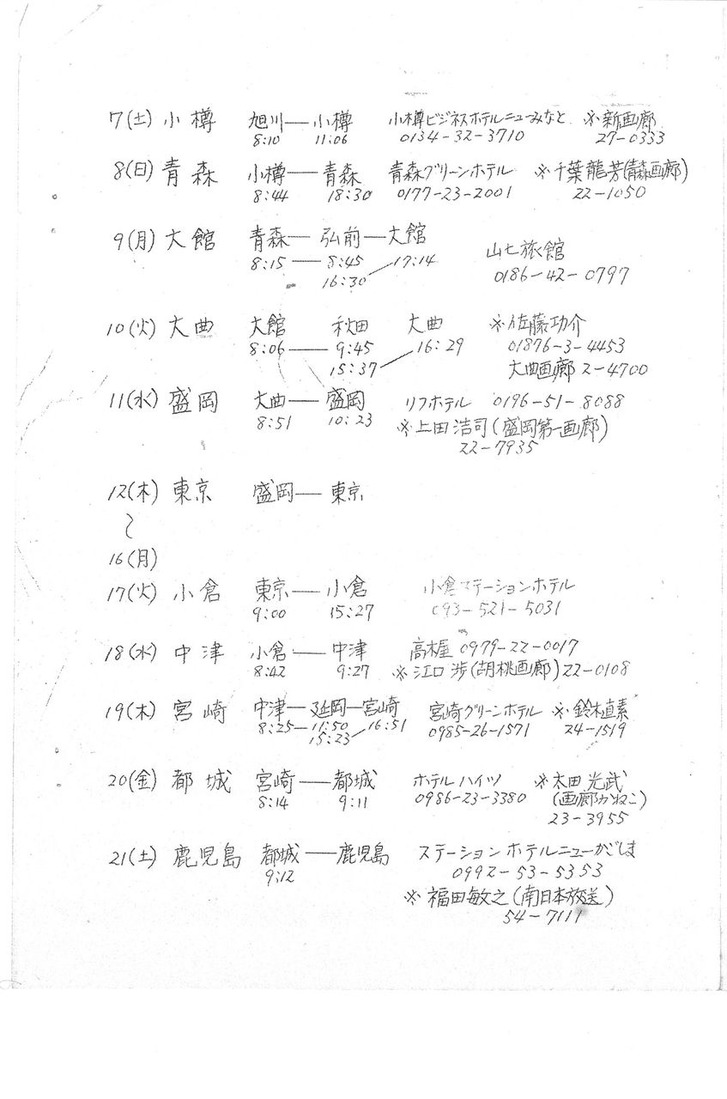 7(土) 小樽 旭川―小樽 小樽ビジネスホテルニューみなと ※新画廊
8:10 11:06 0134-32-3710 27-0333
8(日) 青森 小樽―青森 青森グリーンホテル ※千葉龍芳(青森画廊)
8:44 18:30 0177-23-2001 22-1050
9(月) 大館 青森―弘前―大館
8:15―8:45 17:14 山七旅館
16:30 0186-42-0797
10(火) 大曲 大館 秋田 大曲 ※佐藤功介
8:06―9:45 16:29 01876-3-4453
15:37 大曲画廊 2-4700
11(水) 盛岡 大曲―盛岡 リフホテル 0196-51-8088
8:51 10:23 ※上田浩司(盛岡第一画廊)
22-7935
12(木) 東京 盛岡―東京
〜
16(月)
17(火) 小倉 東京―小倉 小倉ステーションホテル
9:00 15:27 093-521-5031
18(水) 中津 小倉―中津 0979-22-0017
8:42 9:27 ※江口渉(胡桃画廊)22-0108
19(木) 宮崎 中津―延岡―宮崎 宮崎グリーンホテル ※鈴木直素
8:25―11:50 16:51 0985-26-1571 24-1519
15:23
20(金) 都城 宮崎―都城 ホテルハイツ ※太田光武
8:14 9:11 0986-23-3380 (画廊かねこ)
23-3955
21(土) 鹿児島 都城―鹿児島 ステーションホテルニューかごしま
9:12 0992-53-5353
※福田敏之(南日本放送)
54-7111